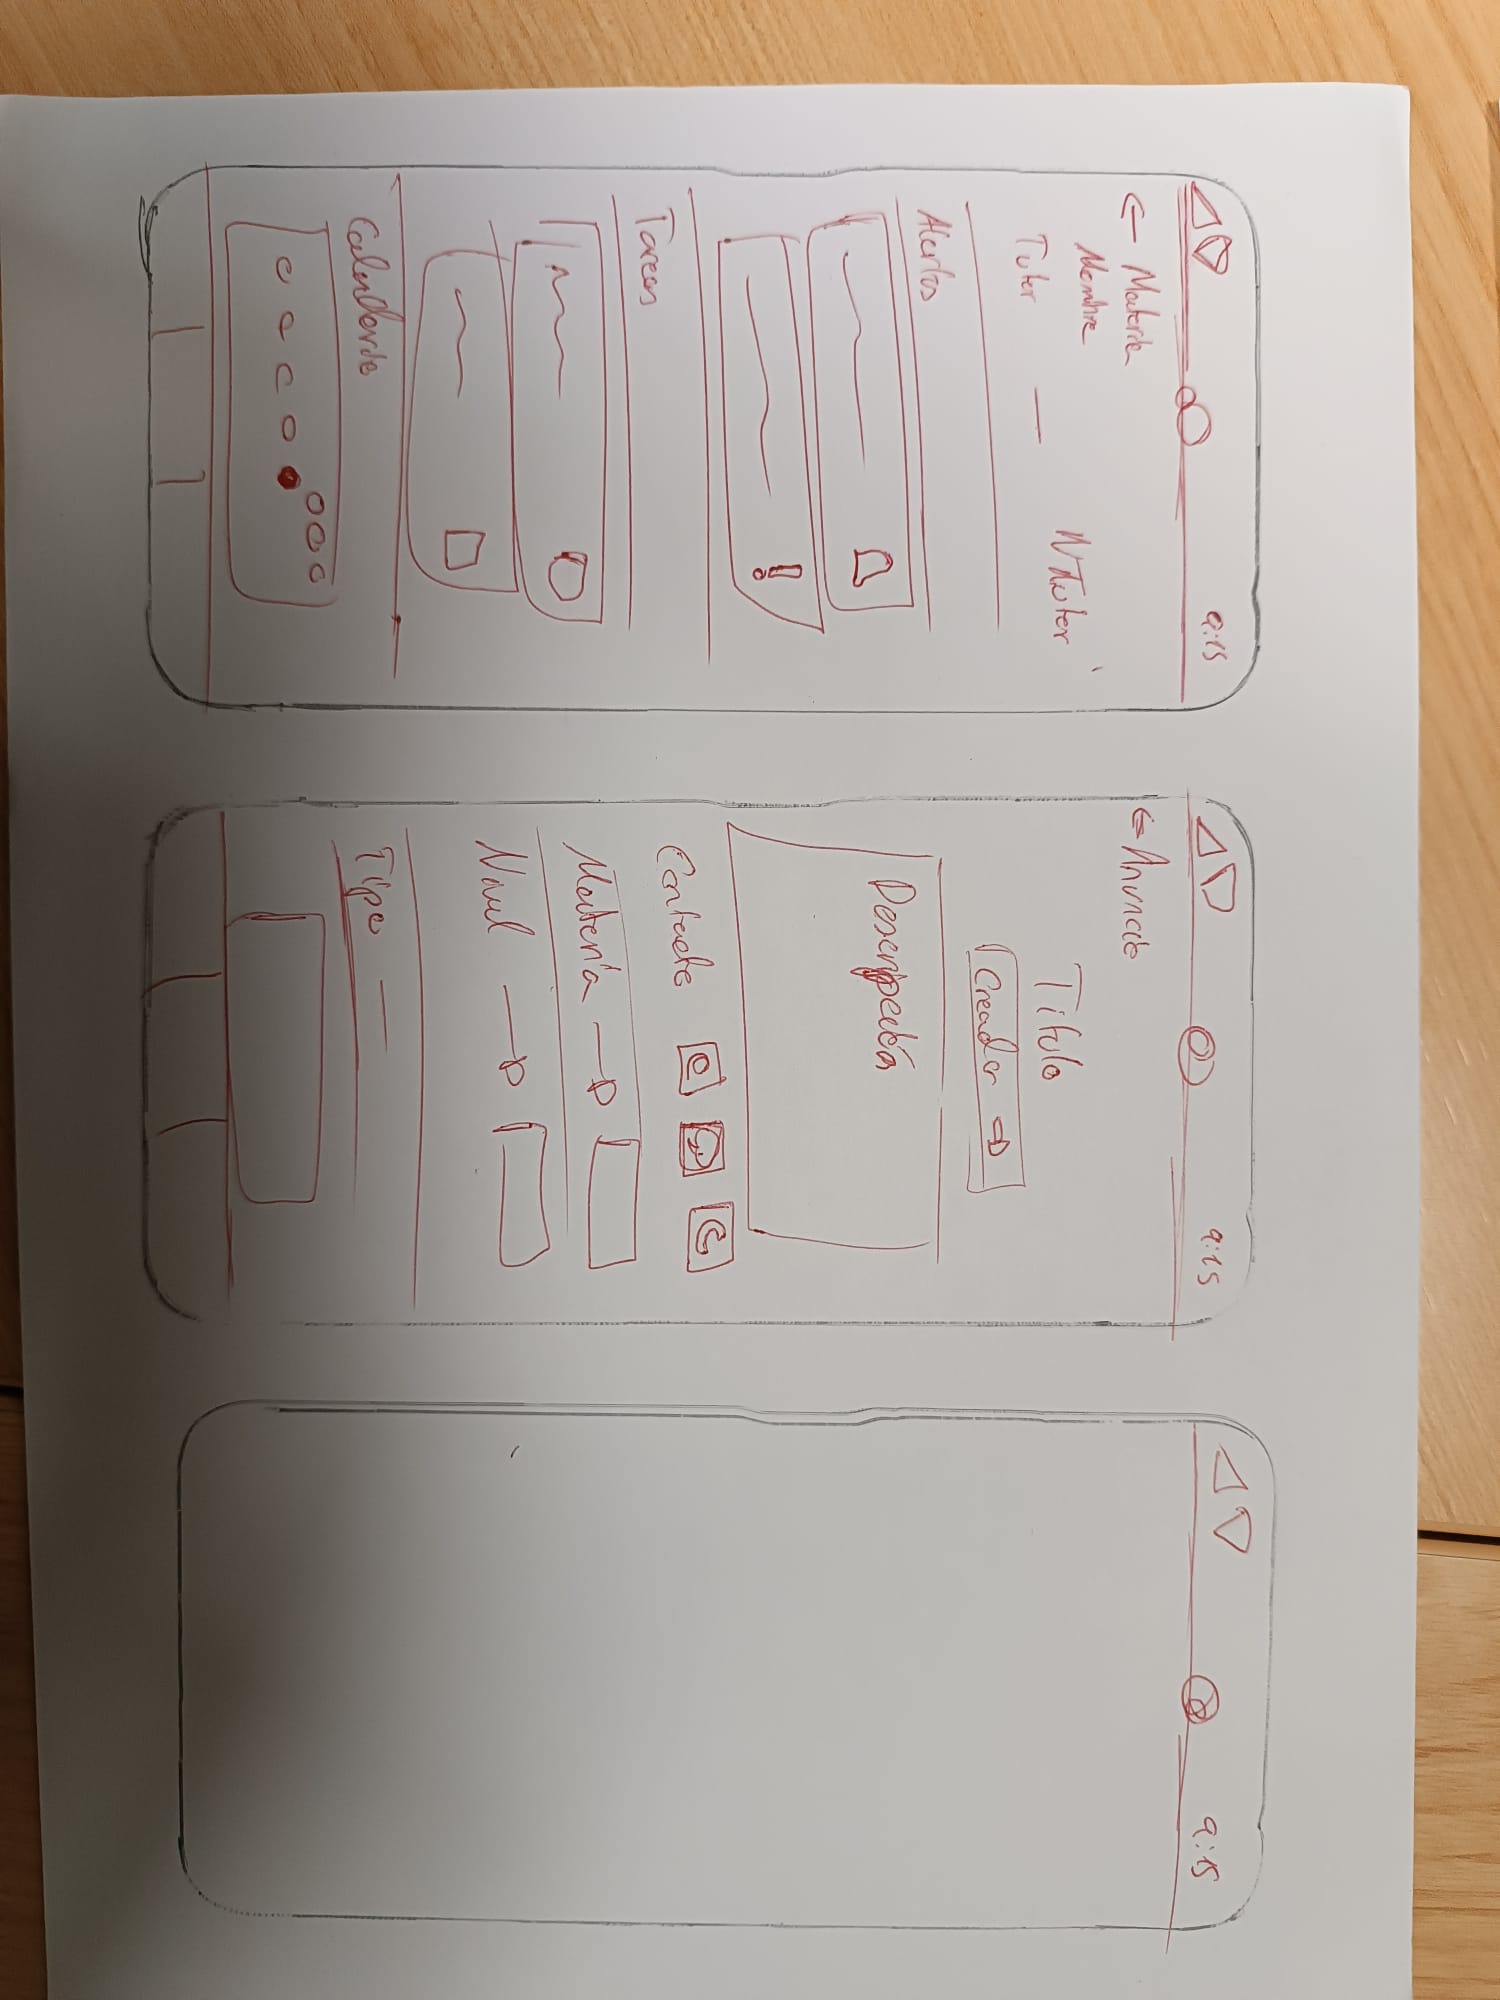 9:15
← Materia
Nombre
Tutor — N Tutor
Alertas
!
Tareas
Calendario
9:15
← Anuncio
Título
Creador
Descripción
Contacto
Materia
Nivel
Tipo —
9:15